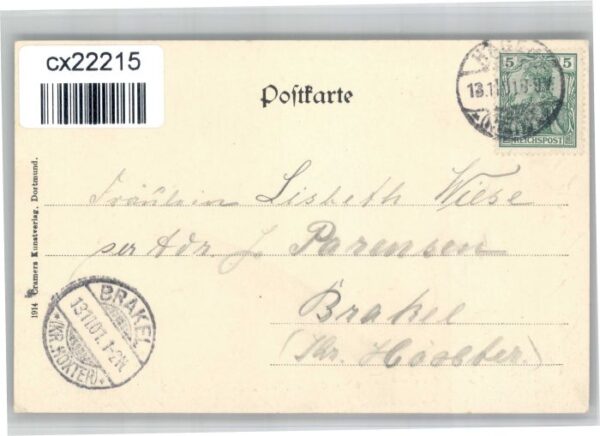 cx22215
Postkarte
5 5
REICHSPOST
13.11.01.
Fräulein Lisbeth Wiese
per Adr. J. Parensen
Brakel
(Kr. Höxter)
BRAKEL
13 11 01. 1-2N.
*(KR. HÖXTER)*
1914 Cramers Kunstverlag, Dortmund.